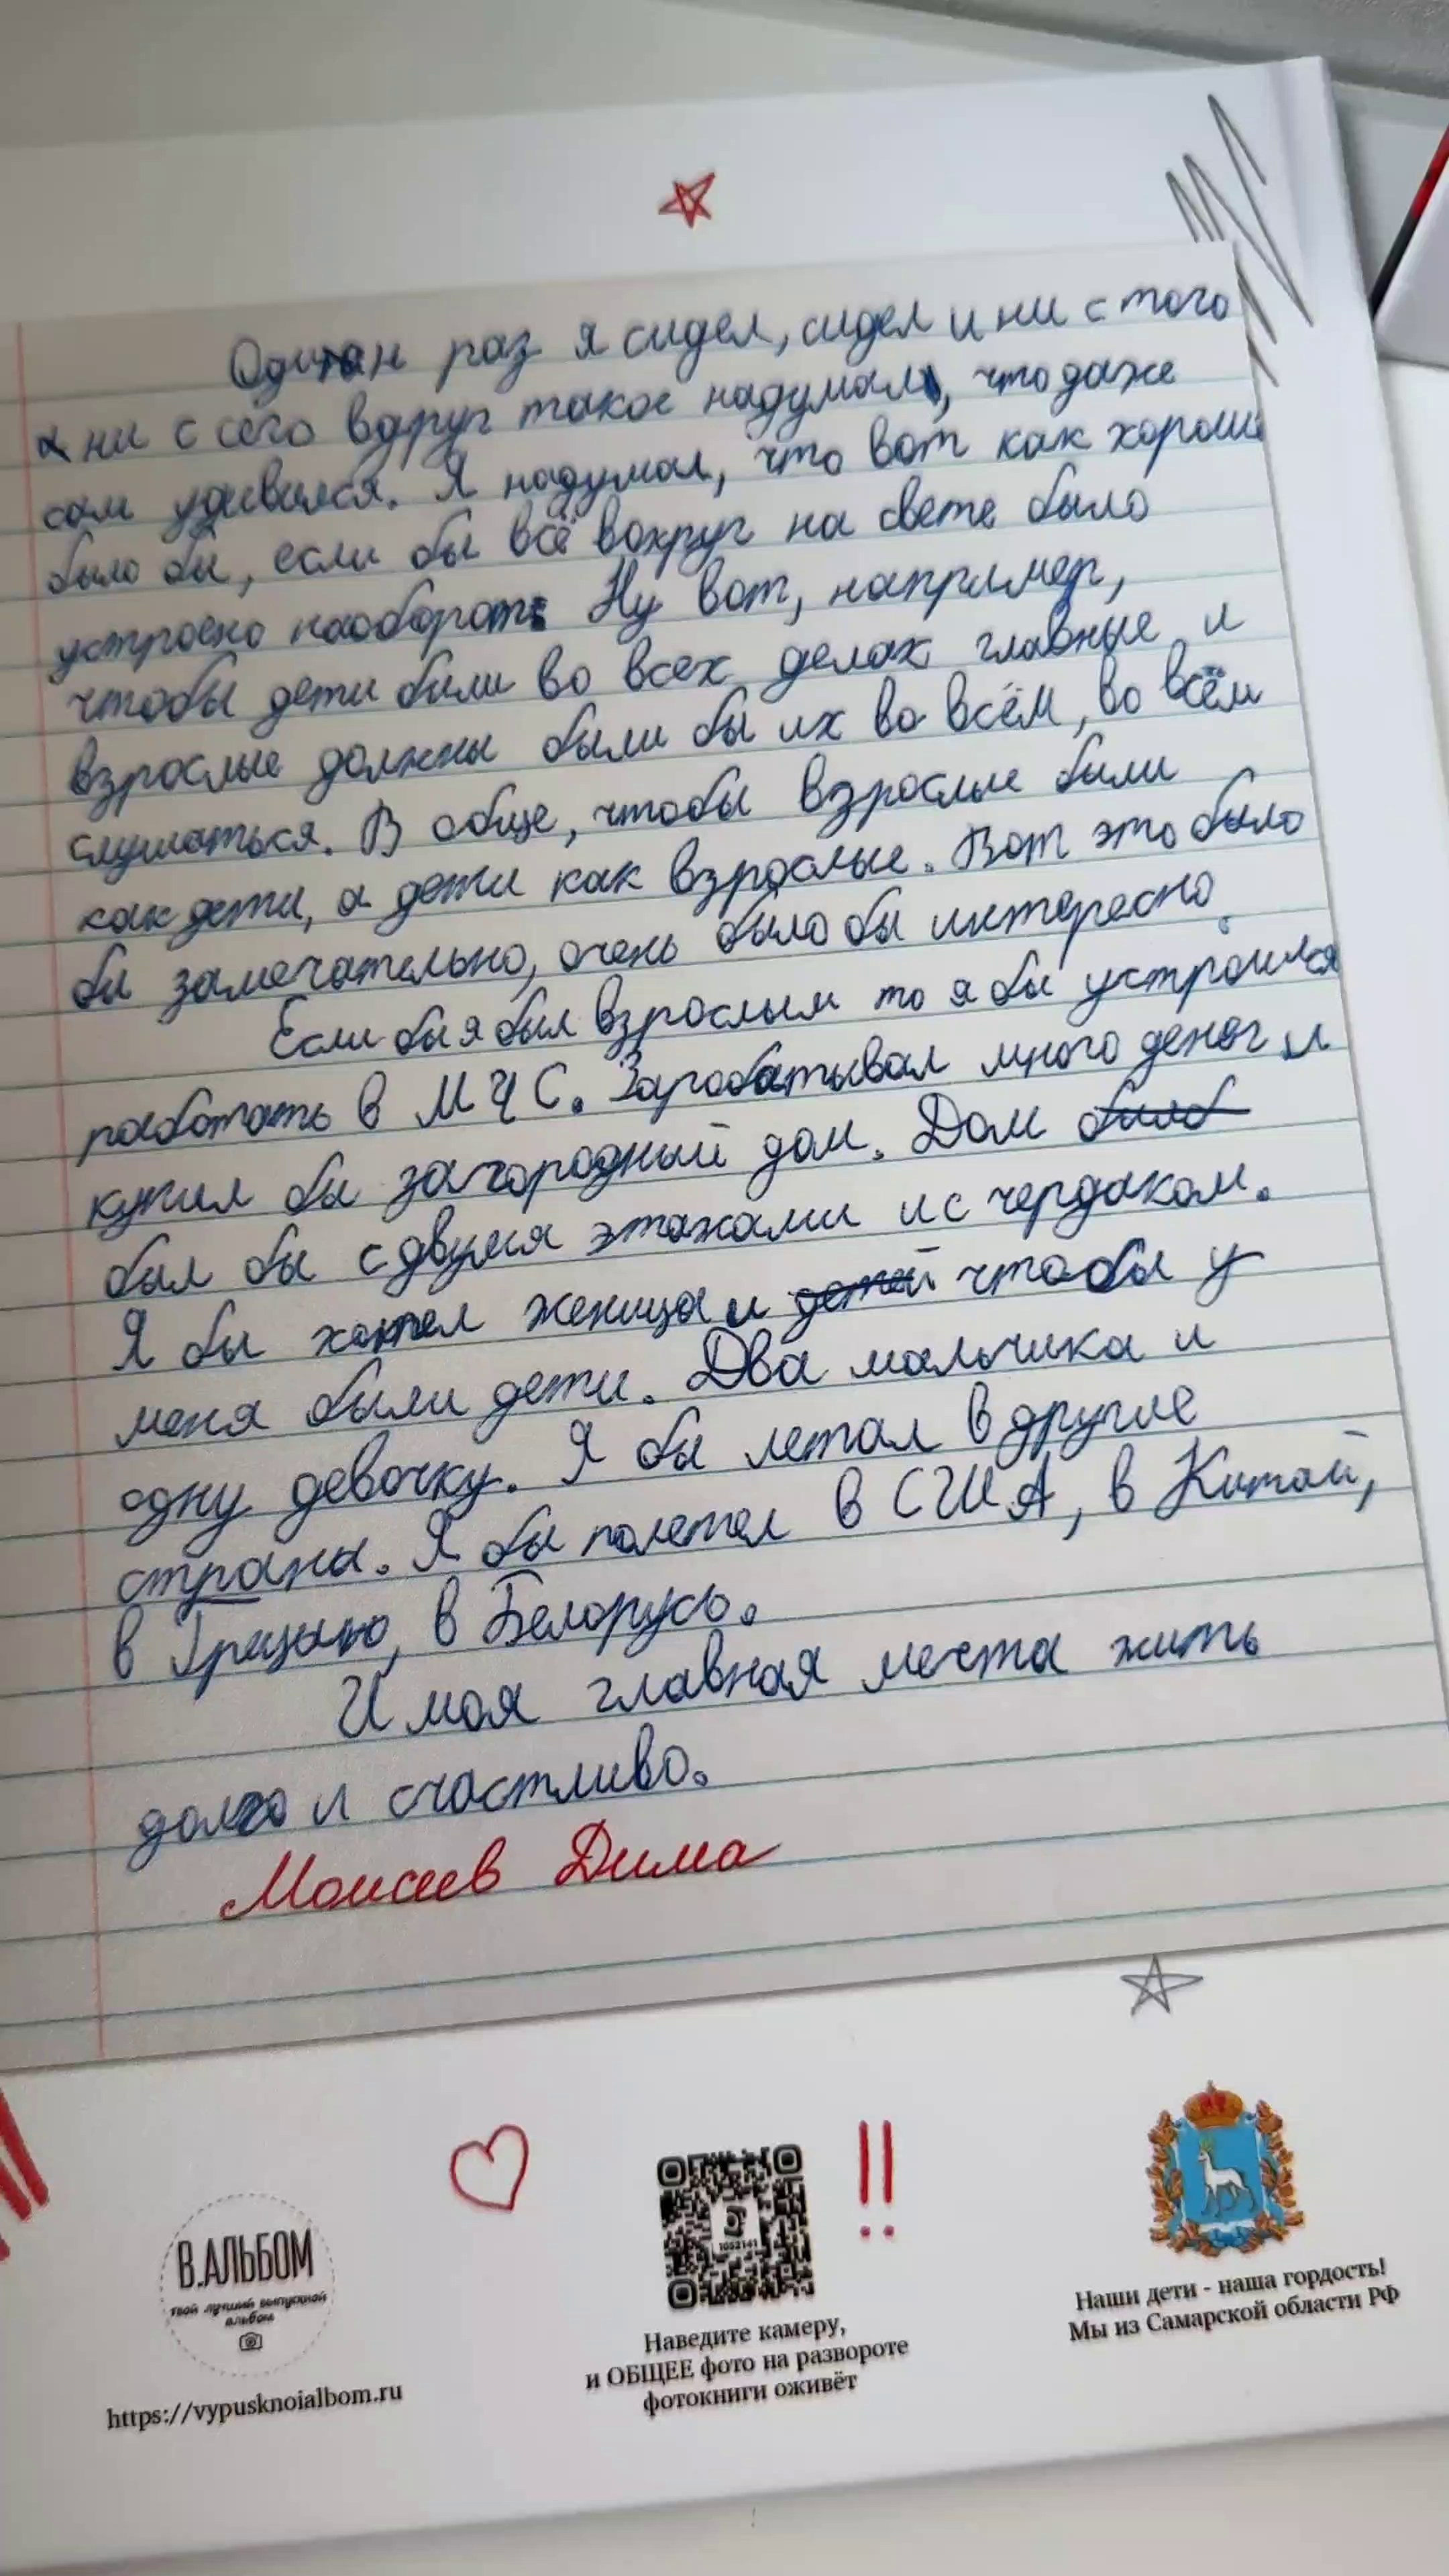 Один раз я сидел, сидел и ни с того
и ни с сего вдруг такое надумал, что даже
сам удивился. Я надумал, что вот как хорошо
было бы, если бы всё вокруг на свете было
устроено наоборот. Ну вот, например,
чтобы дети были во всех делах главные и
взрослые должны были бы их во всём, во всём
слушаться. В обще, чтобы взрослые были
как дети, а дети как взрослые. Вот это было
бы замечательно, очень было бы интересно.
Если бы я был взрослым то я бы устроился
работать в МЧС. Заробатывал много денег и
купил бы загородный дом. Дом было
был бы с двумя этажами и с чердаком.
Я бы хотел женица и детей чтобы у
меня были дети. Два мальчика и
одну девочку. Я бы летал в другие
страны. Я бы полетел в США, в Китай,
в Грецыю, в Белорусь.
И моя главная мечта жить
долго и счастливо.
Моисеев Дима
В.АЛЬБОМ
твой лучший выпускной
альбом
https://vypusknoialbom.ru
1052141
Наведите камеру,
и ОБЩЕЕ фото на развороте
фотокниги оживёт
Наши дети - наша гордость!
Мы из Самарской области РФ